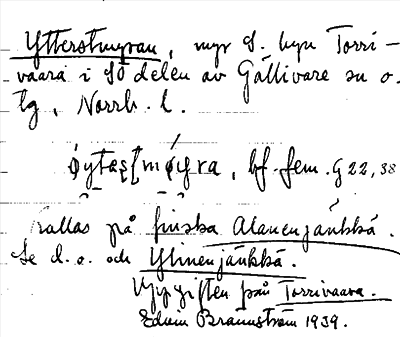 Ytterstmyran, myr S. byn Torri-
vaara i SO delen av Gällivare sn o.
tg, Norrb. l.
bf. fem. G 22, 38
Kallas på finska Alanenjänkkä.
Se d. o. och Ylinenjänkkä.
Uppgiften från Torrivaara.
Edvin Brännström 1939.